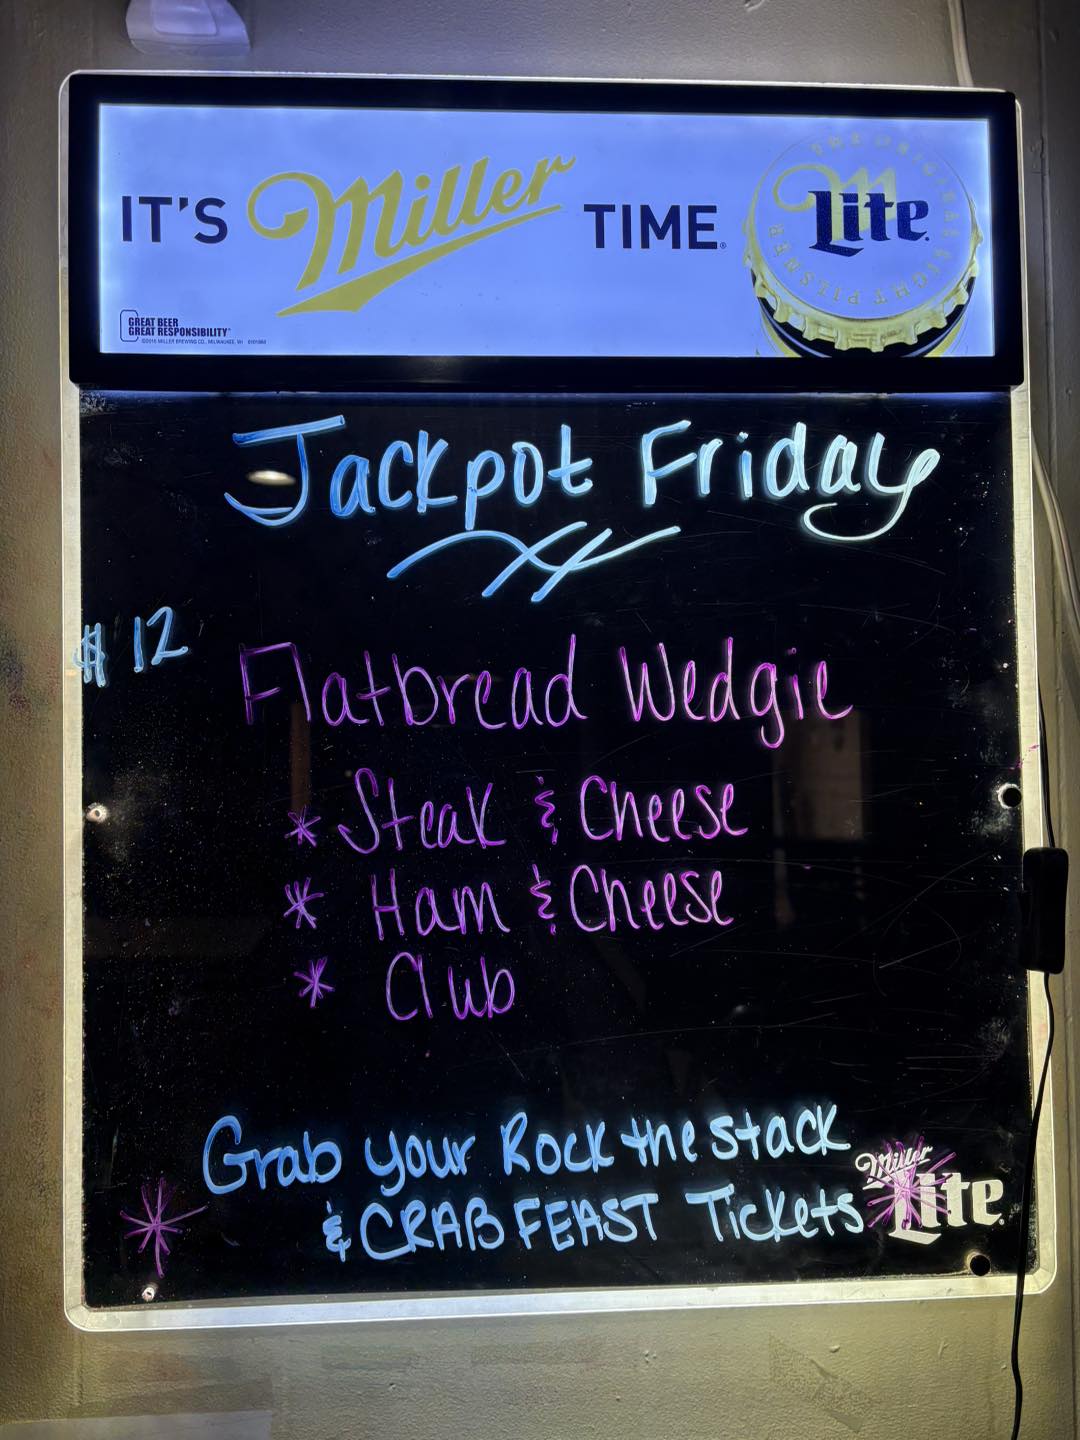 IT'S Miller TIME®
THE ORIGINAL LIGHT PILSNER
Miller Lite
GREAT BEER
GREAT RESPONSIBILITY®
©2015 MILLER BREWING CO., MILWAUKEE, WI
Jackpot Friday
$12
Flatbread Wedgie
* Steak & Cheese
* Ham & Cheese
* Club
Grab your Rock the stack
& CRAB FEAST Tickets
Miller
Lite